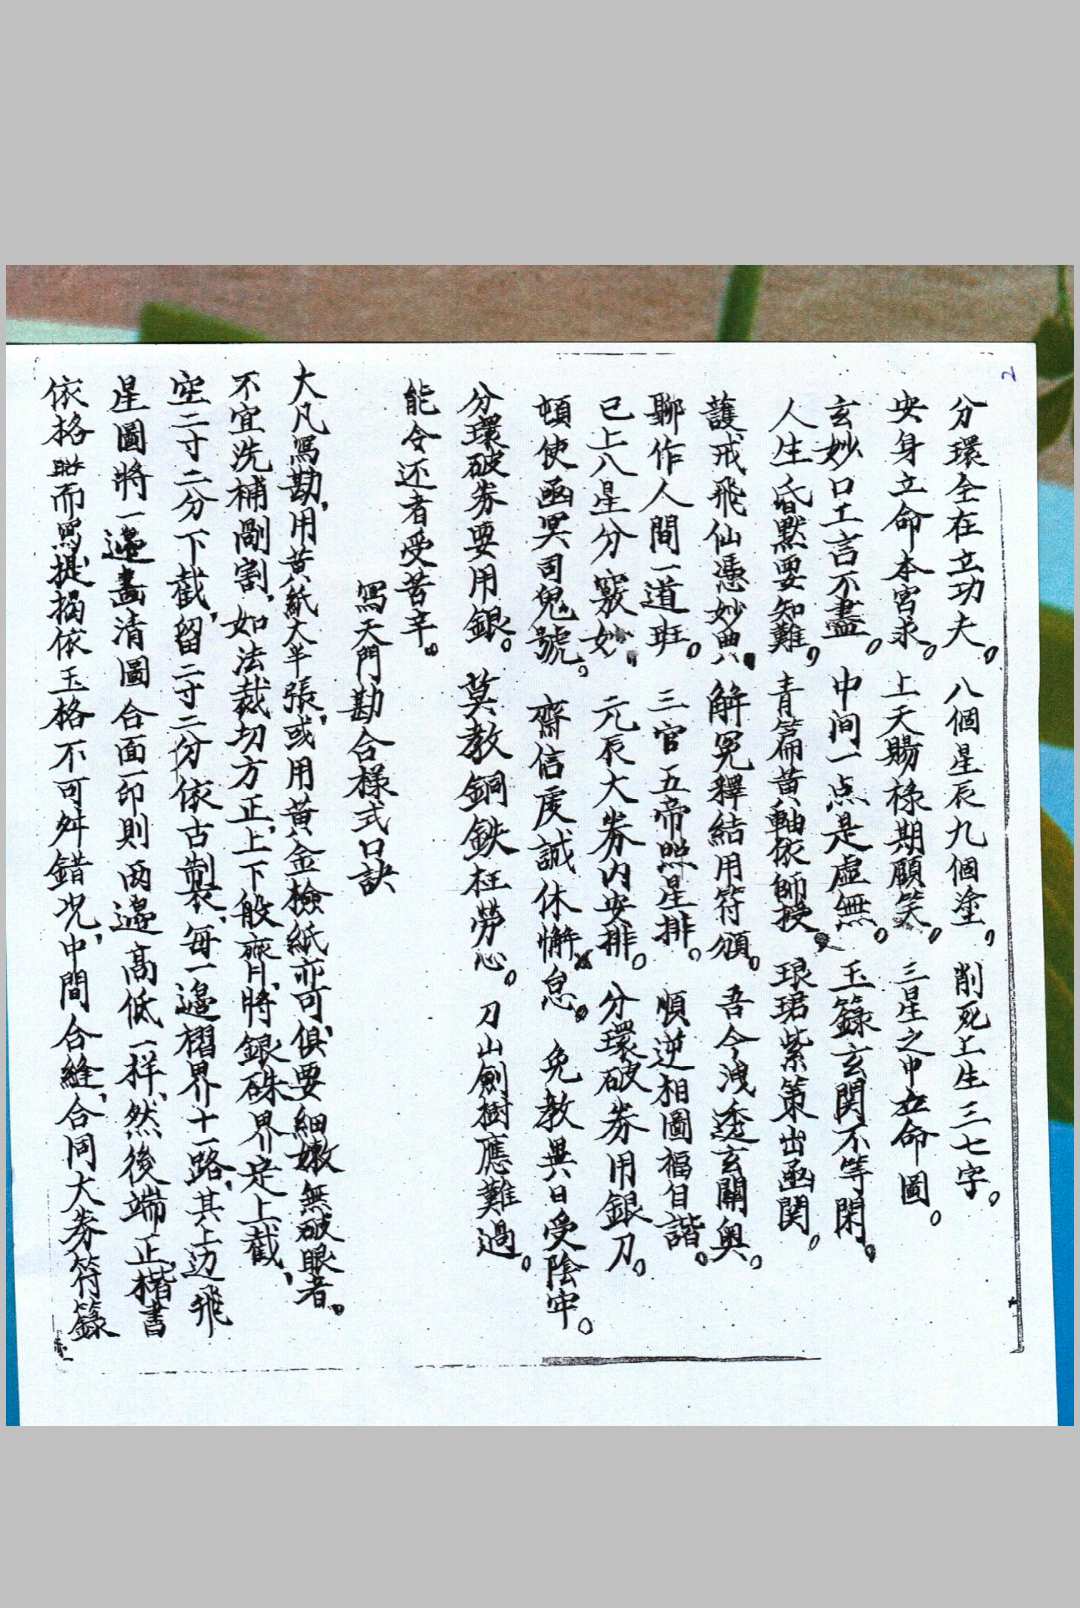 2
分環全在立功夫。八個星辰九個塗。削死上生三七字。
安身立命本宮求。上天賜祿期顧笑。三星之中立命圖。
玄妙口工言不盡。中间一点是虛無。玉籙玄関不等閑。
人生昏默要知難。青篇黃軸依師授。琅珺紫策出函関。
護戒飛仙憑妙典。解冤釋結用符頒。吾今洩透玄關奧。
聊作人間一道班。三官五帝照星排。順逆相圖福自諧。
已上八星分竅妙。元辰大券內安排。分環破券用銀刀。
頓使函冥司鬼號。齋信虔誠休懈怠。免教異日受陰牢。
分環破券要用銀。莫教銅鉄枉勞心。刀山劍樹應難過。
能令还者受苦辛。
寫天門勘合樣式口訣
大凡寫勘，用黃紙大半張，或用黃金檢紙亦可，俱要細嫩無破眼者。
不宜洗補剮割，如法裁切方正，上下般齊，將銀硃界定上截，
空二寸二分下截，留二寸二分依古制裝，每一邊褶界十一路，其上边飛
星圖將一邊畫清圖合面一印則両邊高低一樣，然後端正楷書
依格 而寫提掇依玉格不可舛錯 ，中間合縫，合同大券符籙